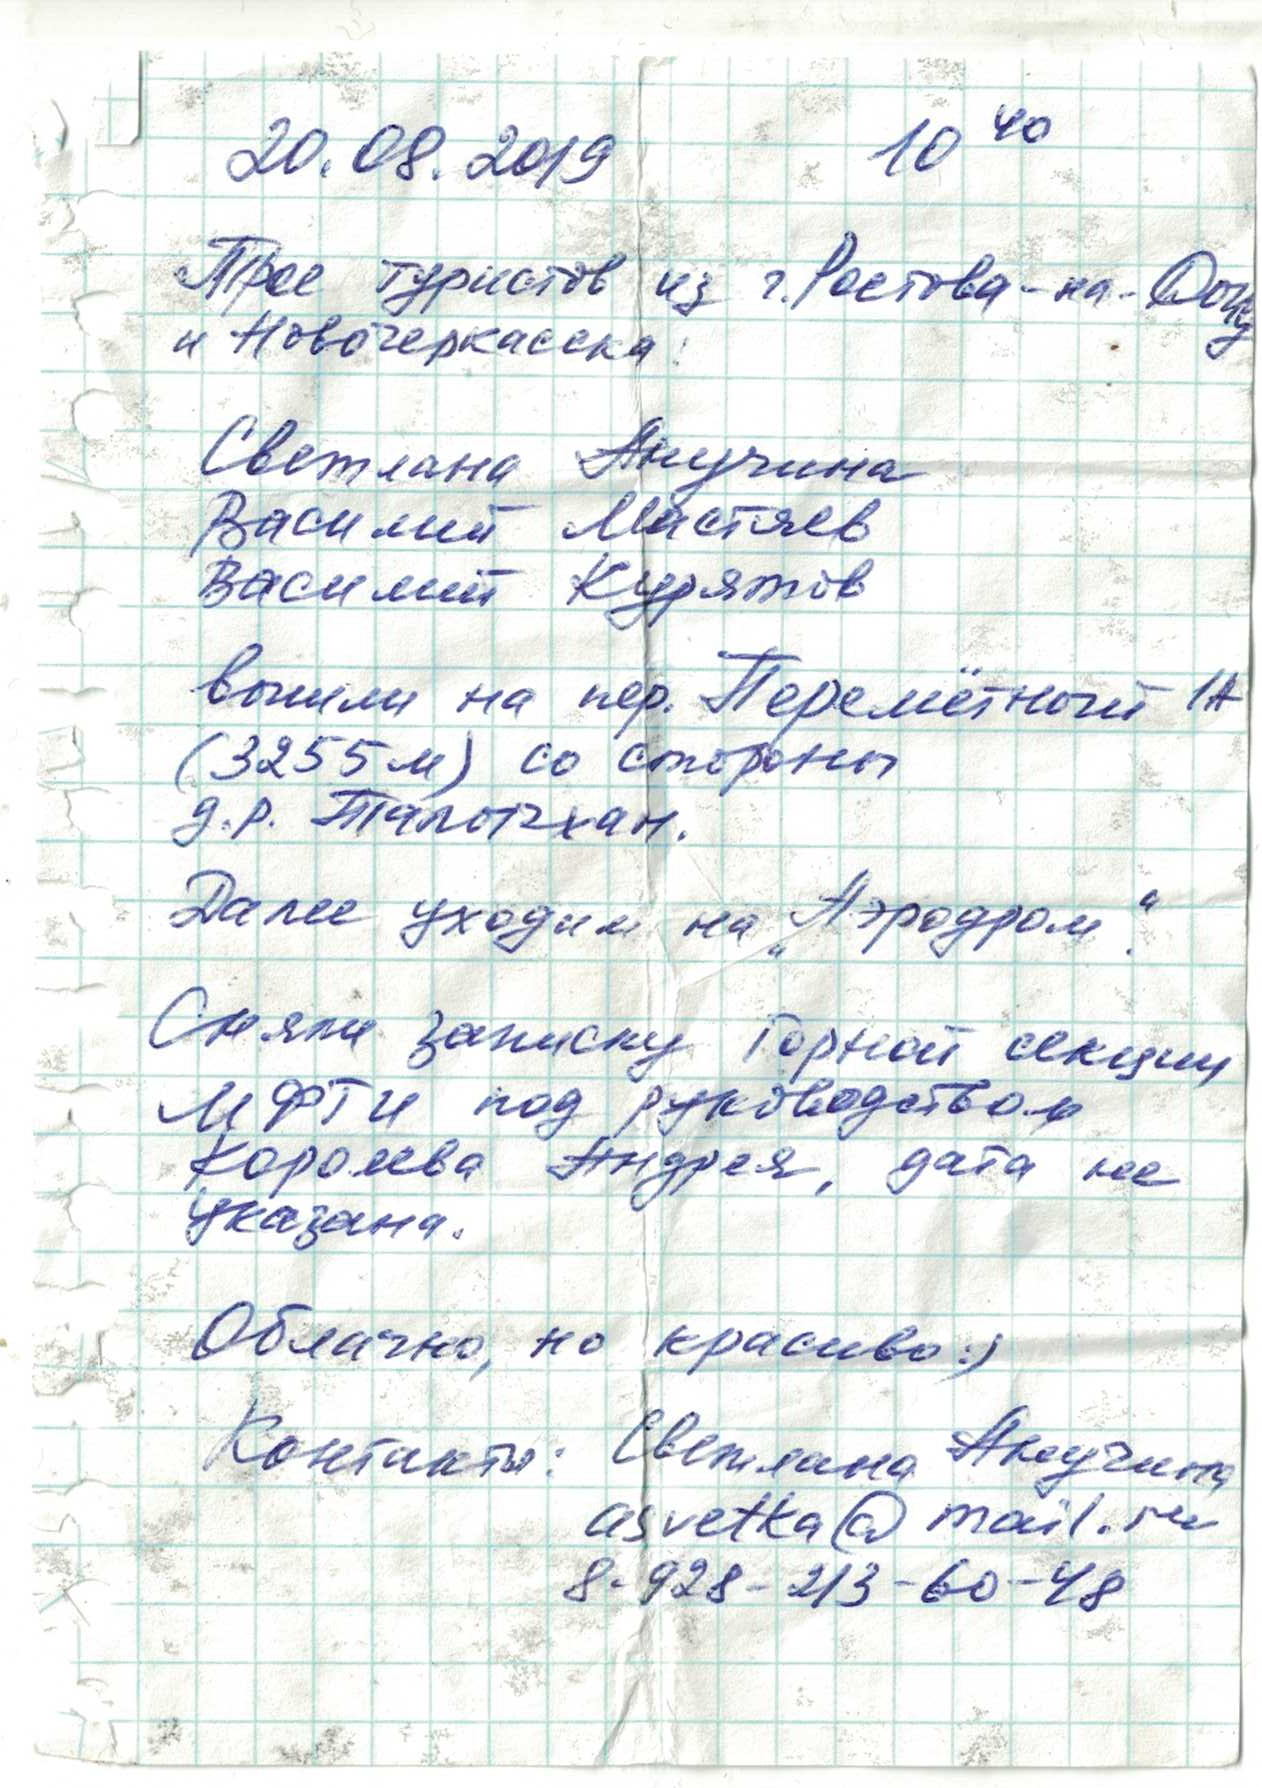 20.08.2019 10⁴⁰
Трое туристов из г.Ростова-на-Дону
и Новочеркасска:
Светлана Анучина
Василий Мастяев
Василий Курятов
вышли на пер. Перемётный 1А
(3255м) со стороны
д.р. Талычхан.
Далее уходим на „Аэродром“.
Сняли записку Горной секции
МФТИ под руководством
Королева Андрея, дата не
указана.
Облачно, но красиво:)
Контакты: Светлана Анучина
asvetka@mail.ru
8-928-213-60-48